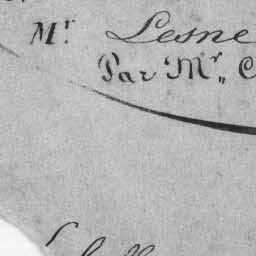 Mr Lesne
Par Mr. C